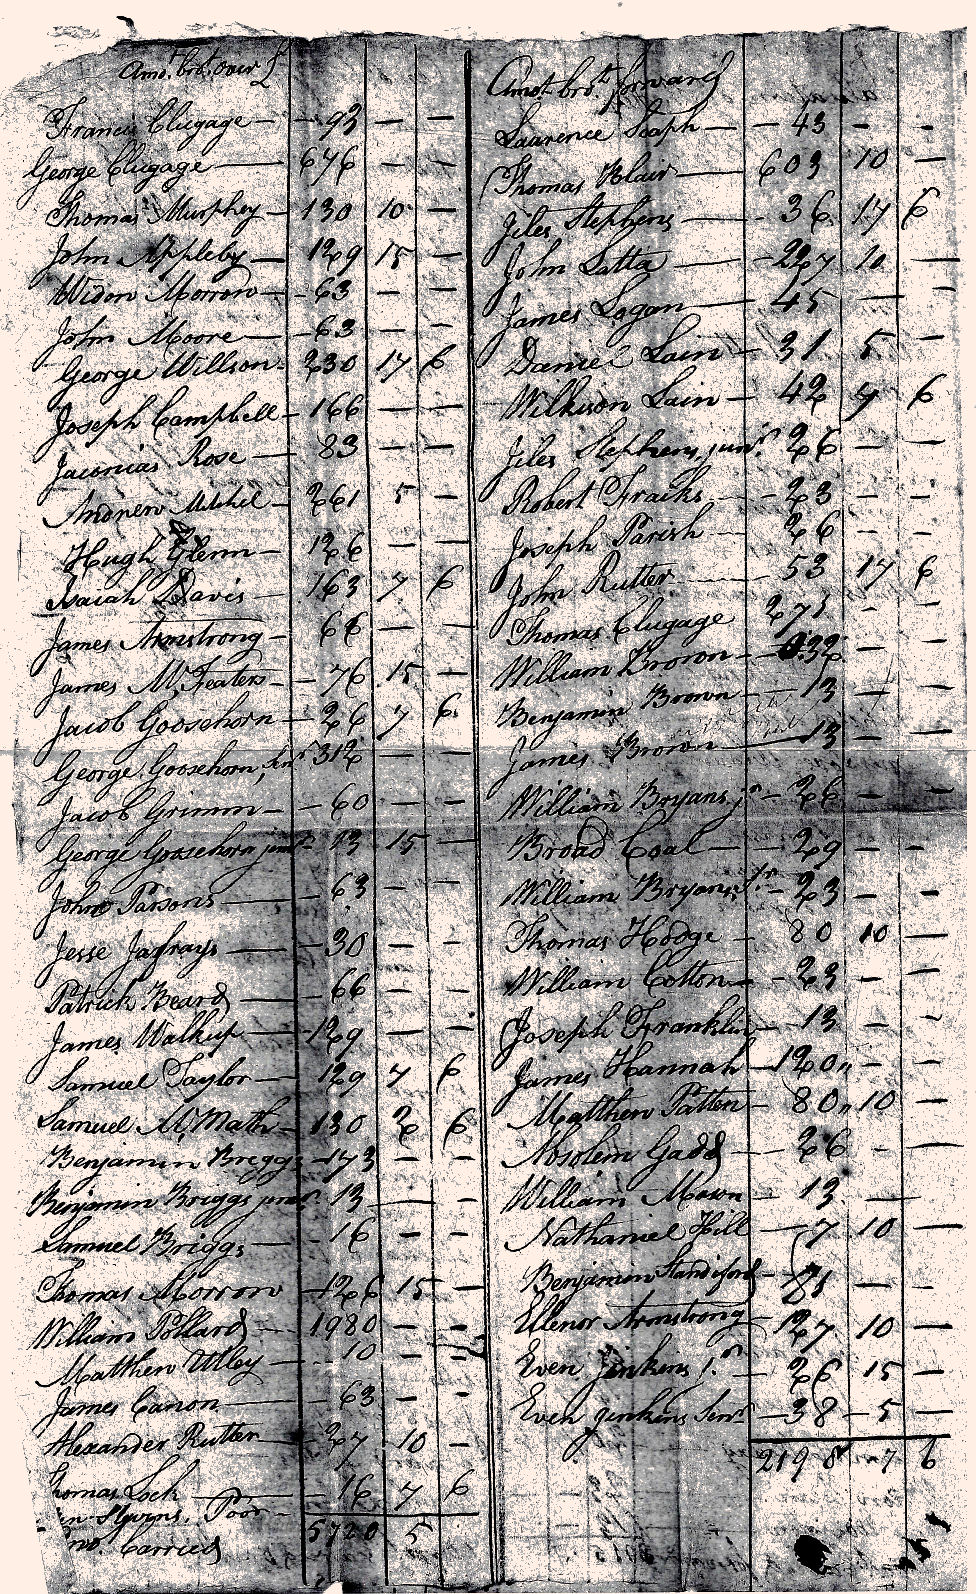 Amot. brot. over £
Francis Clugage — 93 — —
George Clugage — 676 — —
Thomas Murphey — 130 10 —
John Appleby — 129 15 —
Widow Morrow — 63 — —
John Moore — 63 — —
George Willson — 230 17 6
Joseph Campbell — 166 — —
Jaconias Rose — 83 — —
Andrew Mitchel — 261 5 —
Hugh Glenn — 126 — —
Isaiah Davis — 163 7 6
James Armstrong — 66 — —
James McFeaters — 76 15 —
Jacob Goosehorn — 26 7 6
George Goosehorn, senr 312 — —
Jacob Grimm — 60 — —
George Goosehorn junr 13 15 —
John Parsons — 63 — —
Jesse Jafrays — 30 — —
Patrick Beard — 66 — —
James Walkup — 129 — —
Samuel Taylor — 129 7 6
Samuel McMath — 130 2 6
Benjamin Briggs — 173 — —
Benjamin Briggs junr. 13 — —
Samuel Briggs — 16 — —
Thomas Morrow — 126 15 —
William Pollard — 1980 — —
Matthew Utley — 10 — —
James Canon — 63 — —
Alexander Rutter — 27 10 —
Thomas Lock — 16 7 6
Stevens, Poor
Carried 5720 5
Amot. brot. forward
Laurence Soaph — 43 — —
Thomas Blair — 603 10 —
Jiles Stephens — 36 17 6
John Latta — 227 10 —
James Logan — 45 — —
Daniel Lain — 31 5 —
Wilkison Lain — 42 7 6
Jiles Stephens, junr. 26 — —
Robert Fracks — 23 — —
Joseph Parish — 26 — —
John Rutter — 53 17 6
Thomas Clugage 271 — —
William Brown — 32 — —
Benjamin Brown — 13 — —
James Brown — 13 — —
William Bryans jr — 26 — —
Broad Coal — 29 — —
William Bryans Sr — 23 — —
Thomas Hodge — 80 10 —
William Cotton — 23 — —
Joseph Franklin — 13 — —
James Hannah — 120 — —
Matthew Patten — 80 10 —
Absolem Gadd — 26 — —
William Mown — 13 — —
Nathaniel Hill — 7 10 —
Benjamin Standiford — 81 — —
Ellenor Armstrong — 127 10 —
Even Jenkins Jr. — 26 15 —
Even Jenkins Senr — 38 — 5 —
2198 7 6